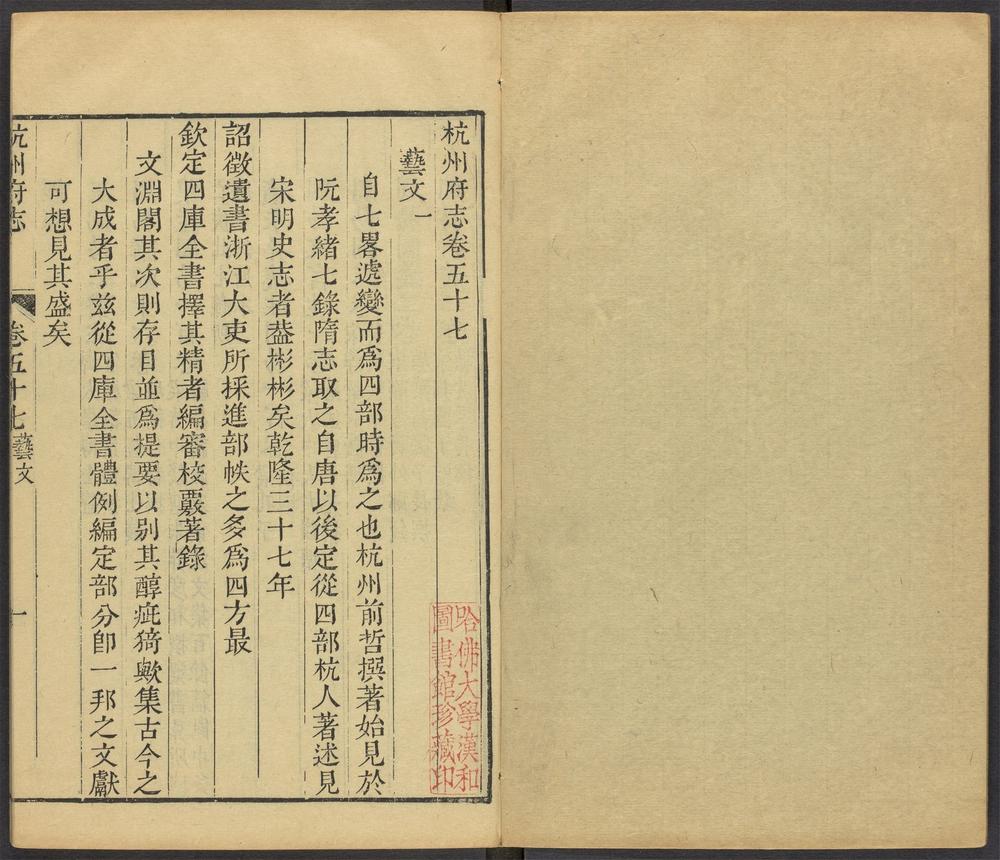 杭州府志卷五十七
藝文一
自七畧遞變而爲四部時爲之也杭州前哲撰著始見於
阮孝緒七錄隋志取之自唐以後定從四部杭人著述見
宋明史志者葢彬彬矣乾隆三十七年
詔徵遺書浙江大吏所採進部帙之多爲四方最
欽定四庫全書擇其精者編審校覈著錄
文淵閣其次則存目並爲提要以别其醇疵猗歟集古今之
大成者乎兹從四庫全書體例編定部分卽一邦之文獻
可想見其盛矣
杭州府志
卷五十七藝文
一
哈佛大學漢和
圖書館珍藏印